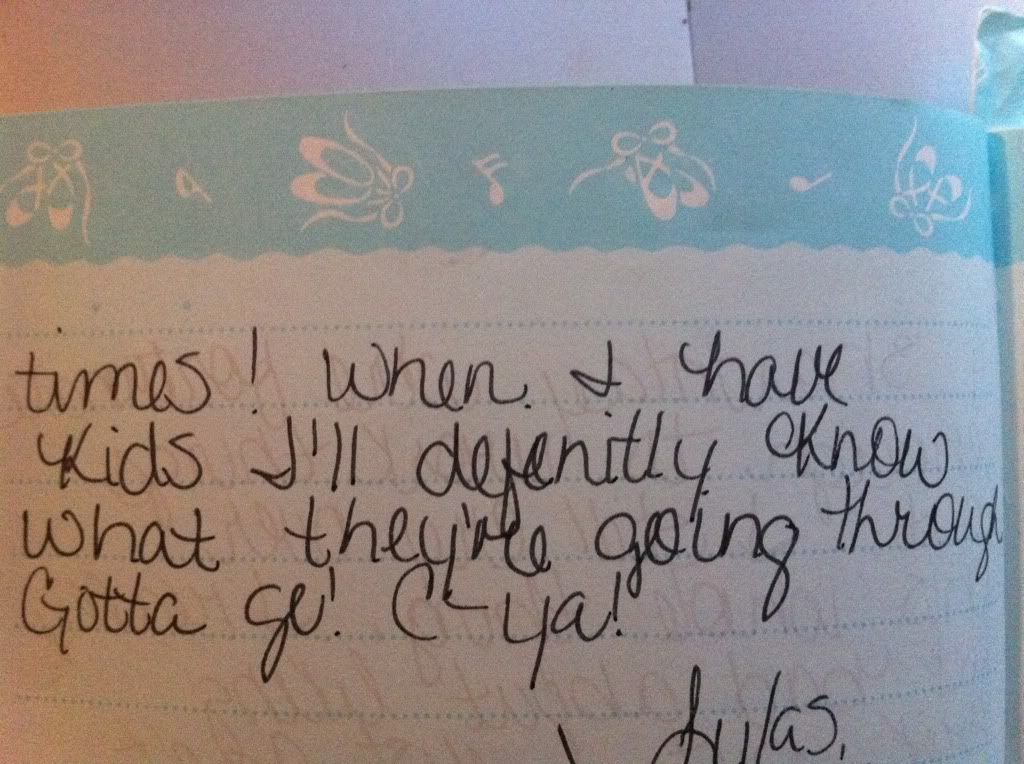 times! When I have
Kids I'll defenitly Know
what they're going through
Gotta go! C-ya!